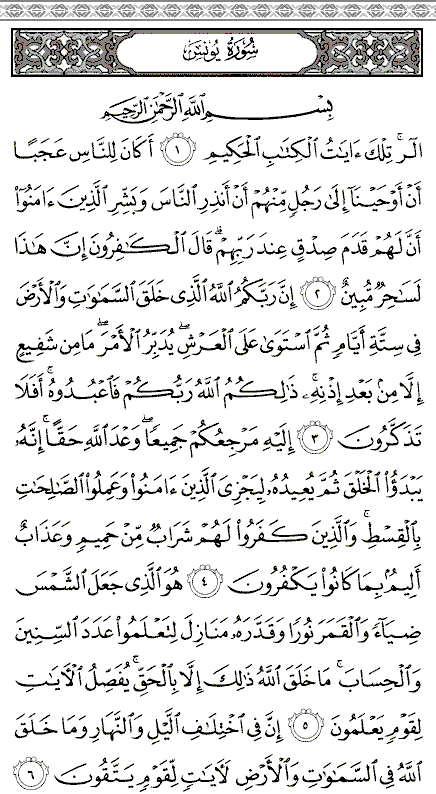 سُورَةُ يُونُسَ
بِسْمِ ٱللَّهِ ٱلرَّحْمَٰنِ ٱلرَّحِيمِ
الٓرۚ تِلْكَ ءَايَٰتُ ٱلْكِتَٰبِ ٱلْحَكِيمِ ١ أَكَانَ لِلنَّاسِ عَجَبًا
أَنْ أَوْحَيْنَآ إِلَىٰ رَجُلٍ مِّنْهُمْ أَنْ أَنذِرِ ٱلنَّاسَ وَبَشِّرِ ٱلَّذِينَ ءَامَنُوٓا۟
أَنَّ لَهُمْ قَدَمَ صِدْقٍ عِندَ رَبِّهِمْۗ قَالَ ٱلْكَٰفِرُونَ إِنَّ هَٰذَا
لَسَٰحِرٌ مُّبِينٌ ٢ إِنَّ رَبَّكُمُ ٱللَّهُ ٱلَّذِى خَلَقَ ٱلسَّمَٰوَٰتِ وَٱلْأَرْضَ
فِى سِتَّةِ أَيَّامٍ ثُمَّ ٱسْتَوَىٰ عَلَى ٱلْعَرْشِۖ يُدَبِّرُ ٱلْأَمْرَۖ مَا مِن شَفِيعٍ
إِلَّا مِنۢ بَعْدِ إِذْنِهِۦۚ ذَٰلِكُمُ ٱللَّهُ رَبُّكُمْ فَٱعْبُدُوهُۚ أَفَلَا
تَذَكَّرُونَ ٣ إِلَيْهِ مَرْجِعُكُمْ جَمِيعًاۖ وَعْدَ ٱللَّهِ حَقًّاۚ إِنَّهُۥ
يَبْدَؤُا۟ ٱلْخَلْقَ ثُمَّ يُعِيدُهُۥ لِيَجْزِىَ ٱلَّذِينَ ءَامَنُوا۟ وَعَمِلُوا۟ ٱلصَّٰلِحَٰتِ
بِٱلْقِسْطِۚ وَٱلَّذِينَ كَفَرُوا۟ لَهُمْ شَرَابٌ مِّنْ حَمِيمٍ وَعَذَابٌ
أَلِيمٌۢ بِمَا كَانُوا۟ يَكْفُرُونَ ٤ هُوَ ٱلَّذِى جَعَلَ ٱلشَّمْسَ
ضِيَآءً وَٱلْقَمَرَ نُورًا وَقَدَّرَهُۥ مَنَازِلَ لِتَعْلَمُوا۟ عَدَدَ ٱلسِّنِينَ
وَٱلْحِسَابَۚ مَا خَلَقَ ٱللَّهُ ذَٰلِكَ إِلَّا بِٱلْحَقِّۚ يُفَصِّلُ ٱلْءَايَٰتِ
لِقَوْمٍ يَعْلَمُونَ ٥ إِنَّ فِى ٱخْتِلَٰفِ ٱلَّيْلِ وَٱلنَّهَارِ وَمَا خَلَقَ
ٱللَّهُ فِى ٱلسَّمَٰوَٰتِ وَٱلْأَرْضِ لَءَايَٰتٍ لِّقَوْمٍ يَتَّقُونَ ٦